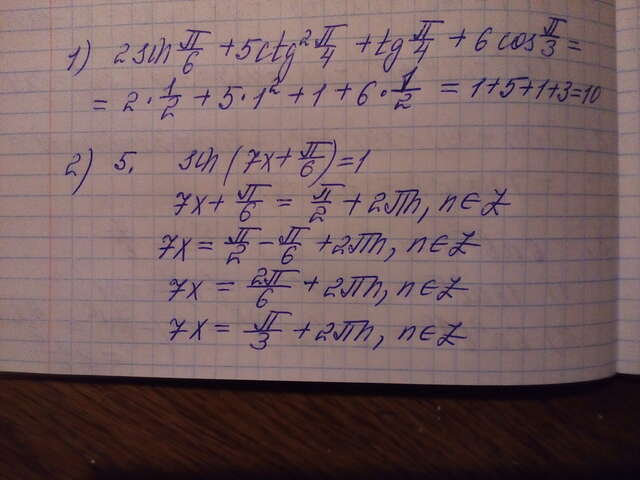 1) 2sin π/6 + 5ctg² π/4 + tg π/4 + 6 cos π/3 =
= 2 · 1/2 + 5 · 1² + 1 + 6 · 1/2 = 1+5+1+3=10
2) 5. sin (7x + π/6) = 1
7x + π/6 = π/2 + 2πn, n ∈ Z
7x = π/2 - π/6 + 2πn, n ∈ Z
7x = 2π/6 + 2πn, n ∈ Z
7x = π/3 + 2πn, n ∈ Z